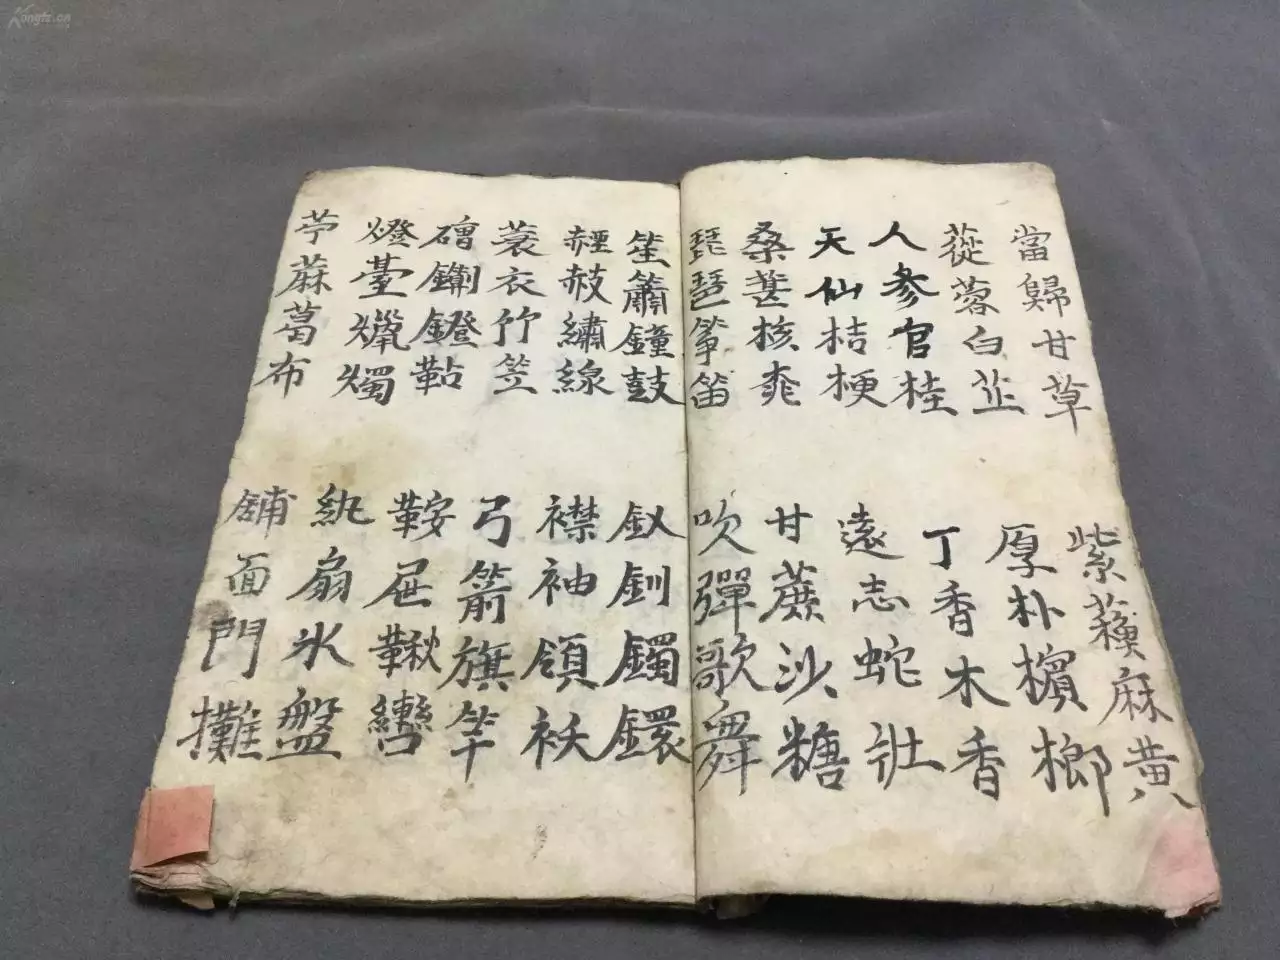 當歸甘草
紫蘓麻黄
蓯蓉白芷
厚朴檳榔
人參官桂
丁香木香
天仙桔梗
遠志蛇壯
桑葚核
甘蔗沙糖
琵琶筝笛
吹彈歌舞
笙簫鐘鼓
釵釧鐲鐶
繡線
襟袖領袄
蓑衣竹笠
弓箭旗竿
鐙
鞍屉鞦轡
燈臺燭
紈扇氷盤
苧蔴葛布
舖面門攤
Kongfz.cn